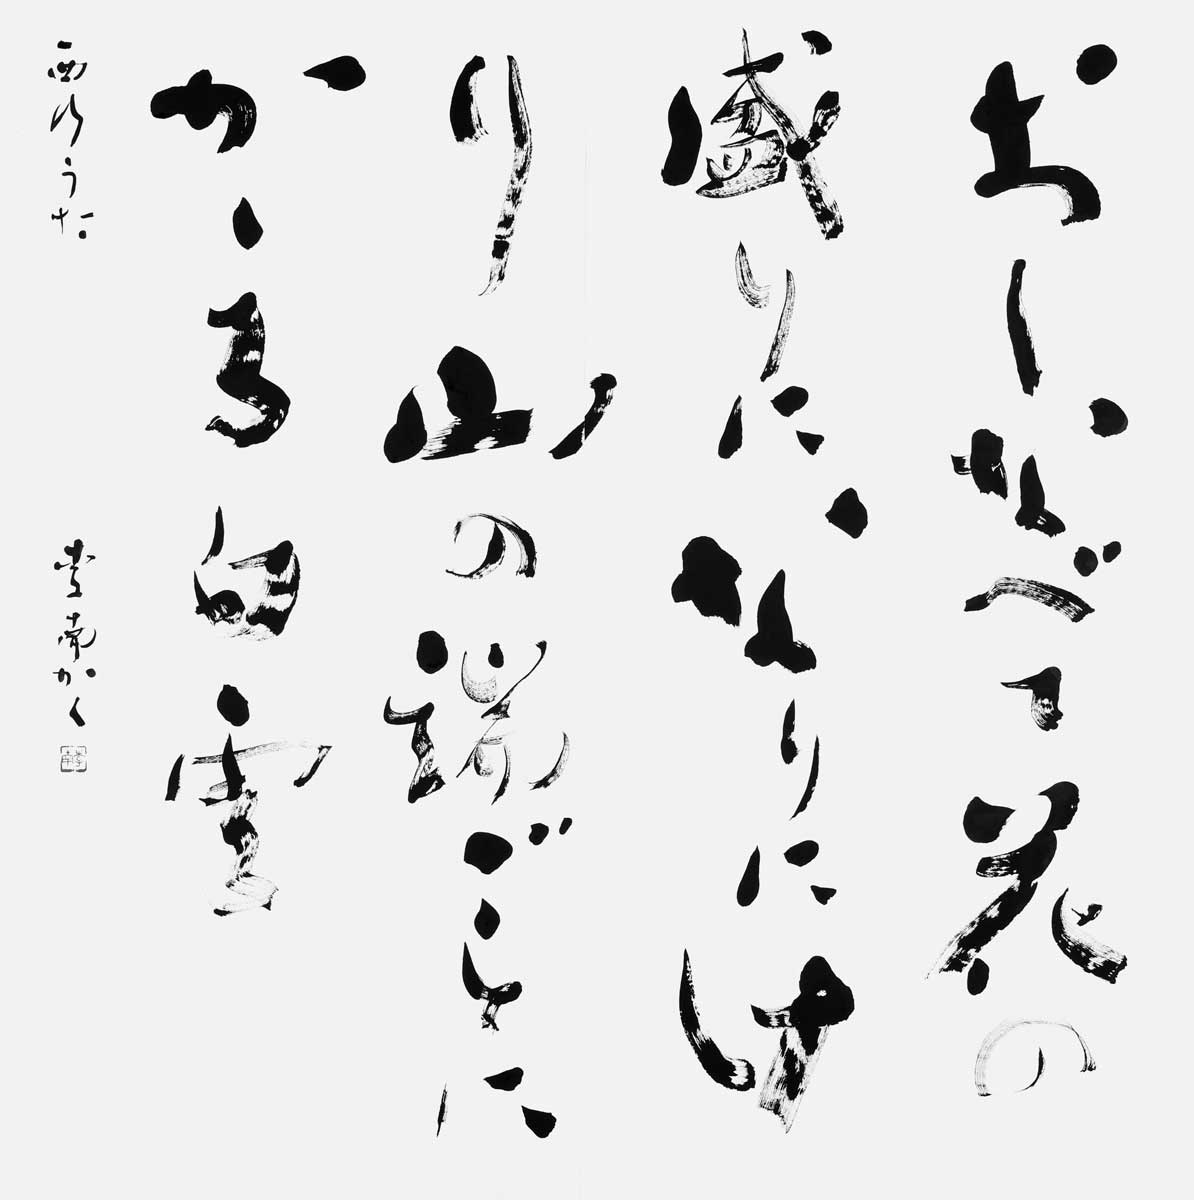 おしなべて花の
盛りになりにけ
り山の端ごとに
かゝる白雲
西行うた
南かく